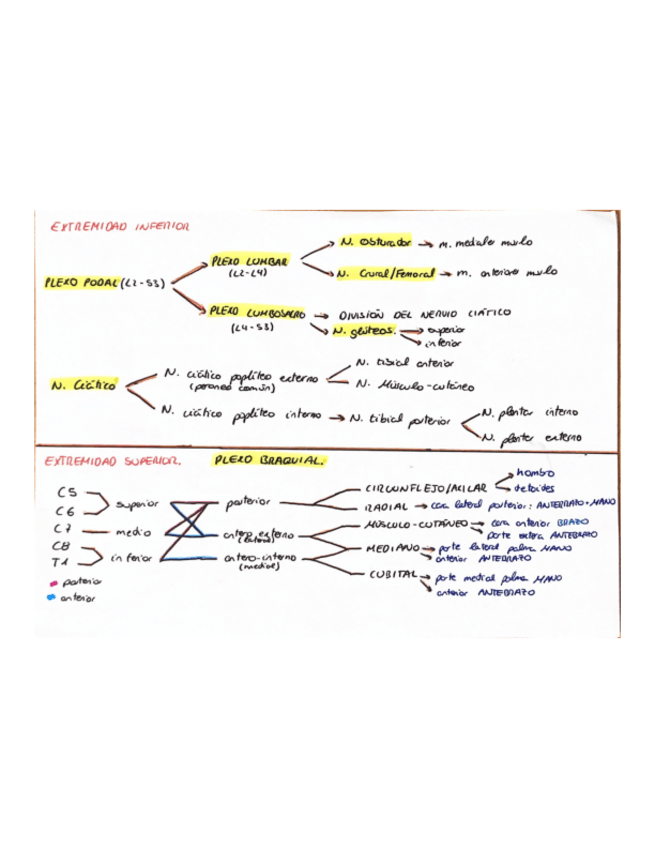 EXTREMIDAD INFERIOR
N. Obsturador → m. mediales muslo
PLEXO LUMBAR
(L2-L4)
N. Crural/Femoral → m. anteriores muslo
PLEXO PODAL (L2-S3)
PLEXO LUMBOSACRO → DIVISIÓN DEL NERVIO CIÁTICO
(L4-S3)
N. glúteos → superior
→ inferior
N. tibial anterior
N. Ciático
N. ciático poplíteo externo
(peroneo común)
N. Músculo-cutáneo
N. ciático poplíteo interno → N. tibial posterior
N. plantar interno
N. plantar externo
EXTREMIDAD SUPERIOR. PLEXO BRAQUIAL.
C5
C6
superior
C7
medio
C8
T1
inferior
posterior
antero externo
(lateral)
antero-interno
(medial)
CIRCUNFLEJO/AXILAR
→ hombro
→ deltoides
RADIAL → cara lateral posterior: ANTEBRAZO + MANO
MÚSCULO-CUTÁNEO → cara anterior BRAZO
parte externa ANTEBRAZO
MEDIANO → parte lateral palma MANO
anterior ANTEBRAZO
CUBITAL → parte medial palma MANO
anterior ANTEBRAZO
posterior
anterior